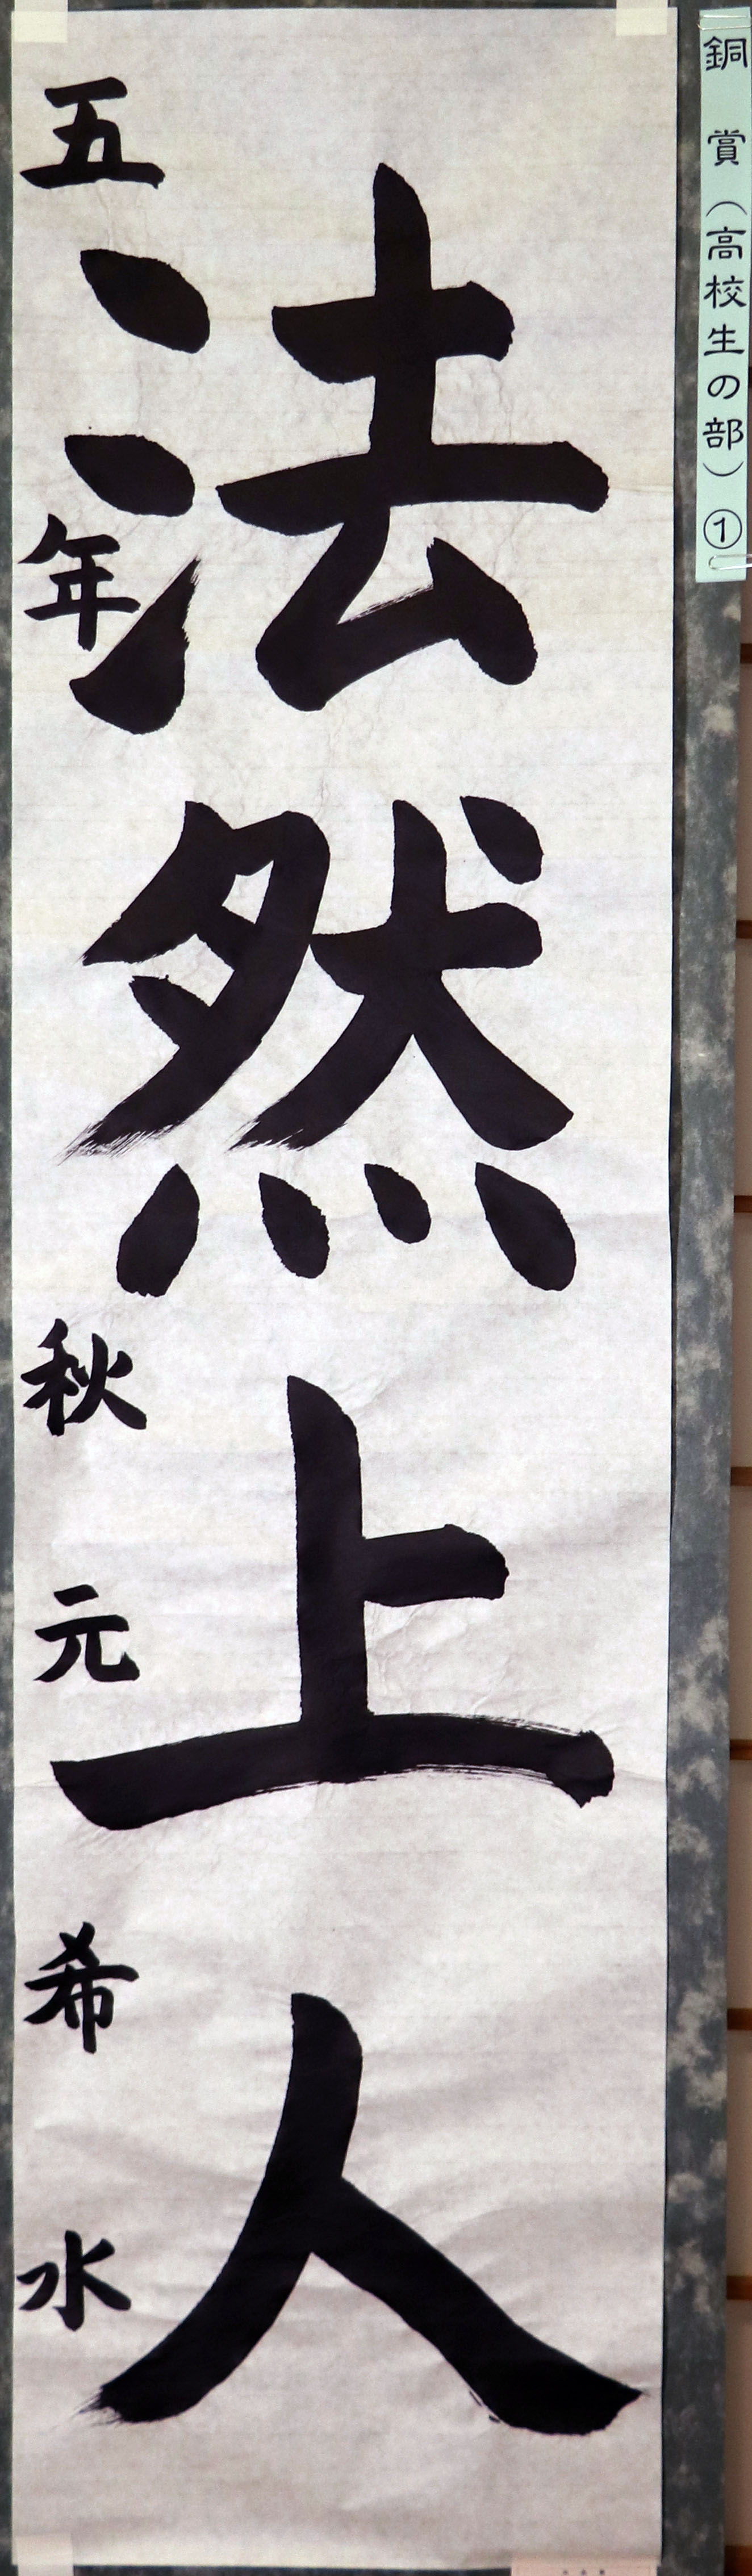 銅賞（高校生の部）①
法然上人
五年 秋元希水